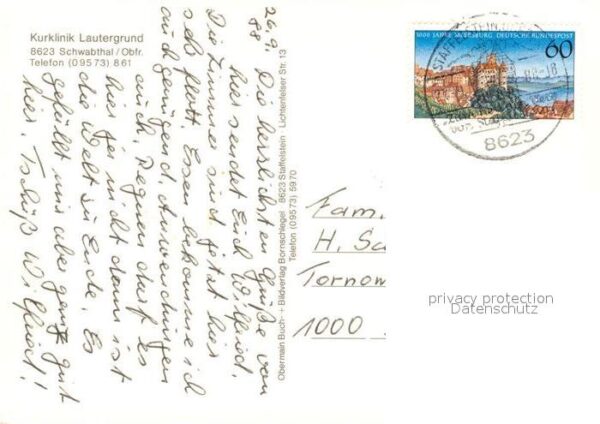 Kurklinik Lautergrund
8623 Schwabthal / Obfr.
Telefon (09573) 861
26.9.
88
Die herzlichsten Grüße von
hier sendet Euch Wilfried.
Die Zimmer sind jetzt hier
sehr flott. Essen bekomme ich
auch genügend, Anwendungen
auch. Regnen darf es
hier nicht dann ist
die Welt zu Ende. Es
gefällt mir aber ganz gut
hier. Tschüß Wilfried!
Obermain Buch- + Bildverlag Bornschlegel 8623 Staffelstein Lichtenfelser Str. 13
Telefon (09573) 5970
1000 JAHRE MEERSBURG DEUTSCHE BUNDESPOST
60
STAFFELSTEIN
8623
Fam.
H. Sa
Tornow
1000
privacy protection
Datenschutz